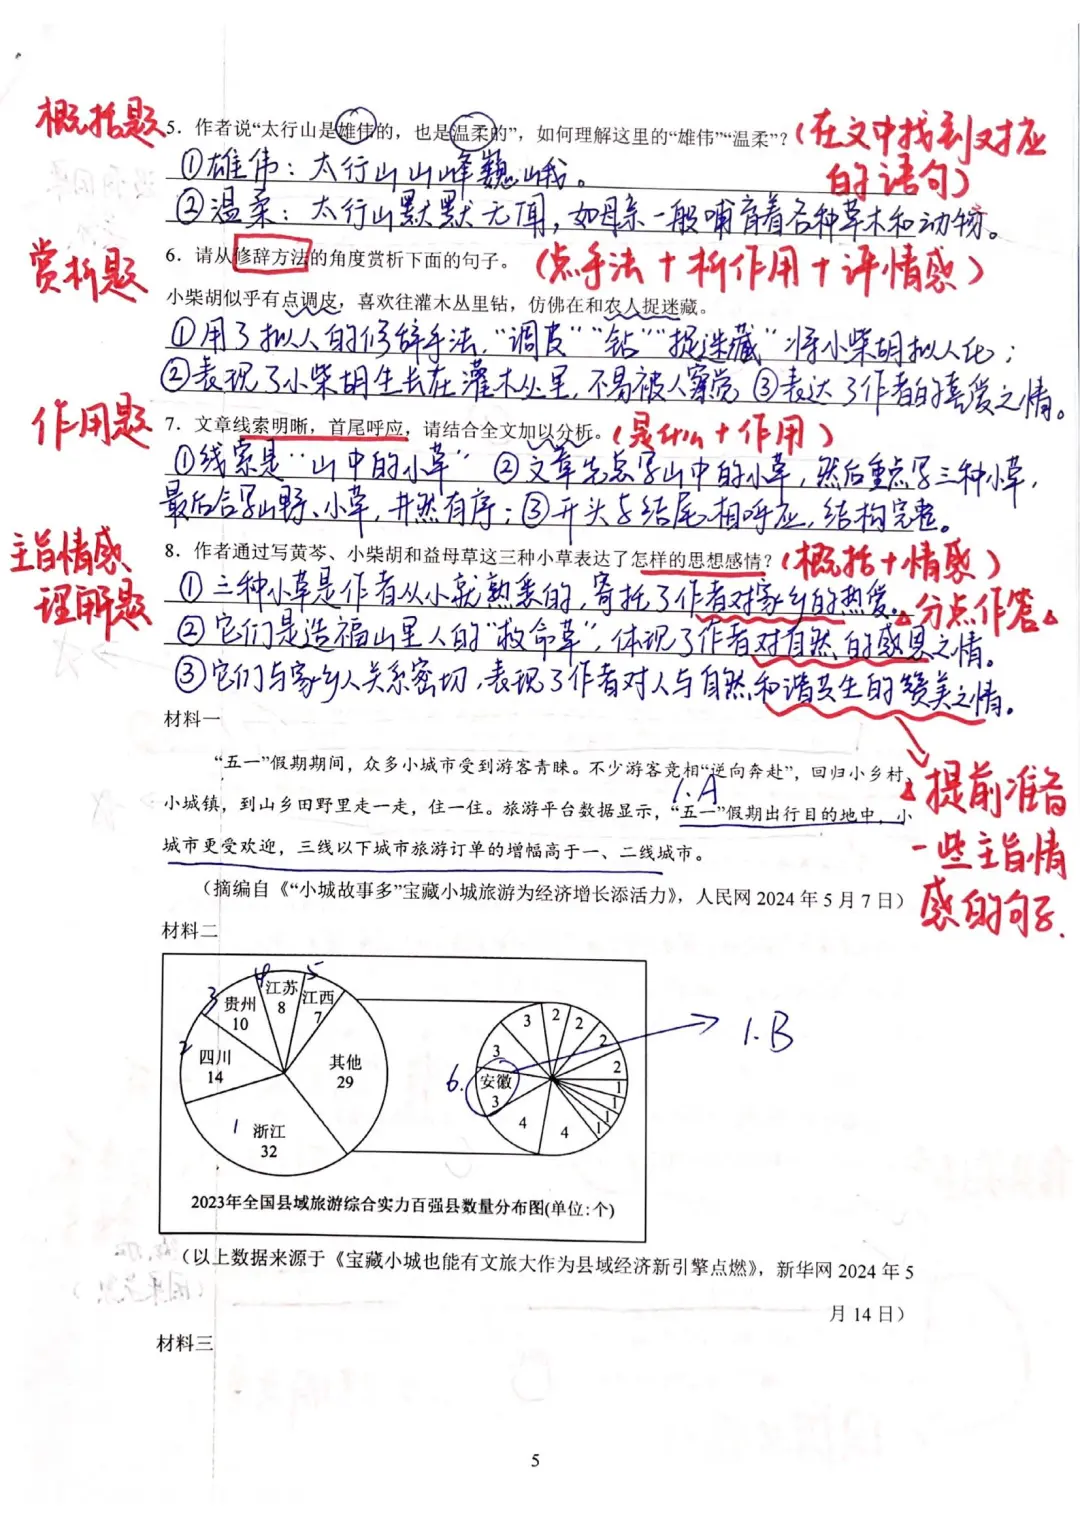 概括题
5．作者说“太行山是雄伟的，也是温柔的”，如何理解这里的“雄伟”“温柔”？
(在文中找到对应
的语句)
①雄伟：太行山山峰巍峨。
②温柔：太行山默默无闻，如母亲一般哺育着各种草木和动物。
赏析题
6．请从修辞方法的角度赏析下面的句子。
(点手法+析作用+评情感)
小柴胡似乎有点调皮，喜欢往灌木丛里钻，仿佛在和农人捉迷藏。
①用了拟人的修辞手法，“调皮”“钻”“捉迷藏”将小柴胡拟人化；
②表现了小柴胡生长在灌木丛里，不易被人察觉 ③表达了作者的喜爱之情。
作用题
7．文章线索明晰，首尾呼应，请结合全文加以分析。
(是什么+作用)
①线索是“山中的小草” ②文章先总写山中的小草，然后重点写三种小草，
最后合写山野、小草，井然有序；③开头与结尾相呼应，结构完整。
主旨情感
理解题
8．作者通过写黄芩、小柴胡和益母草这三种小草表达了怎样的思想感情？
(概括+情感)
①三种小草是作者从小就熟悉的，寄托了作者对家乡的热爱。
分点作答
②它们是造福山里人的“救命草”，体现了作者对自然的感恩之情。
③它们与家乡人关系密切，表现了作者对人与自然和谐共生的赞美之情。
提前准备
一些主旨情
感的句子.
材料一
“五一”假期期间，众多小城市受到游客青睐。不少游客竞相“逆向奔赴”，回归小乡村、
1.A
小城镇，到山乡田野里走一走，住一住。旅游平台数据显示，“五一”假期出行目的地中，小
城市更受欢迎，三线以下城市旅游订单的增幅高于一、二线城市。
（摘编自《“小城故事多”宝藏小城旅游为经济增长添活力》，人民网 2024 年 5 月 7 日）
材料二
1
浙江
32
2
四川
14
3
贵州
10
4
江苏
8
5
江西
7
其他
29
6.
安徽
3
3
3
2
2
2
2
1
1
1
1
4
4
1.B
2023年全国县域旅游综合实力百强县数量分布图(单位:个)
（以上数据来源于《宝藏小城也能有文旅大作为县域经济新引擎点燃》，新华网 2024 年 5
月 14 日）
材料三
5